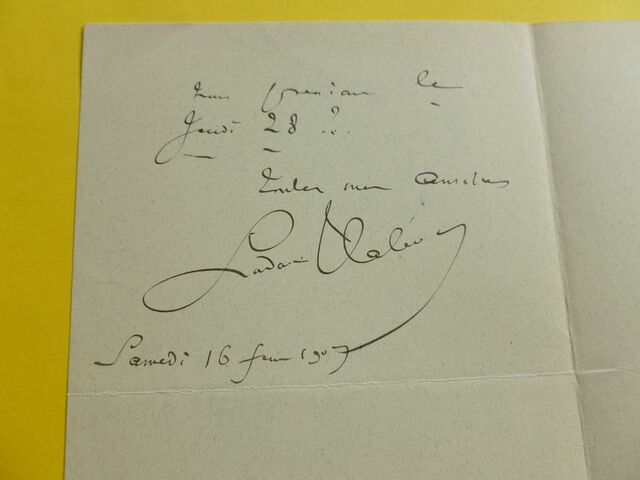 nous prenions le
Jeudi 28 ?..
Toutes mes amitiés
Ludovic Halévy
Samedi 16 févr 1907